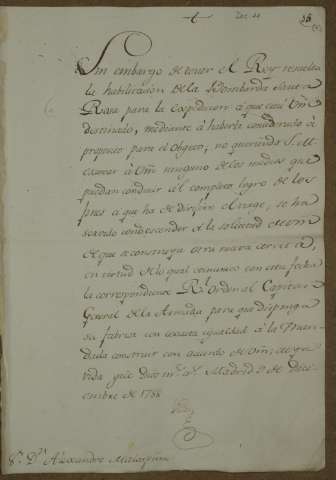 Sin embargo de tener el Rey resuelta
la habilitacion de la Bombarda Santa
Rosa para la expedicion à que está Vm
destinado, mediante à haberla considerado à
proposito para el objeto, no queriendo S. M.
à Vm ninguno de los medios que
puedan conducir al completo logro de los
fines a que ha de dirigirse el viage, se ha
servido condescender à la solicitud de vm
de que se construya otra nueva
en virtud de lo qual comunico con esta fecha
la correspondiente Rl Orden al Capitan
General de la Armada para que disponga
su fabrica con exacta igualdad à la man-
dada construir con acuerdo de Vm; cuya
vida gue Dios ms as Madrid 9 de Dici-
embre de 1788
Sr Dn Alexandro Malaspina